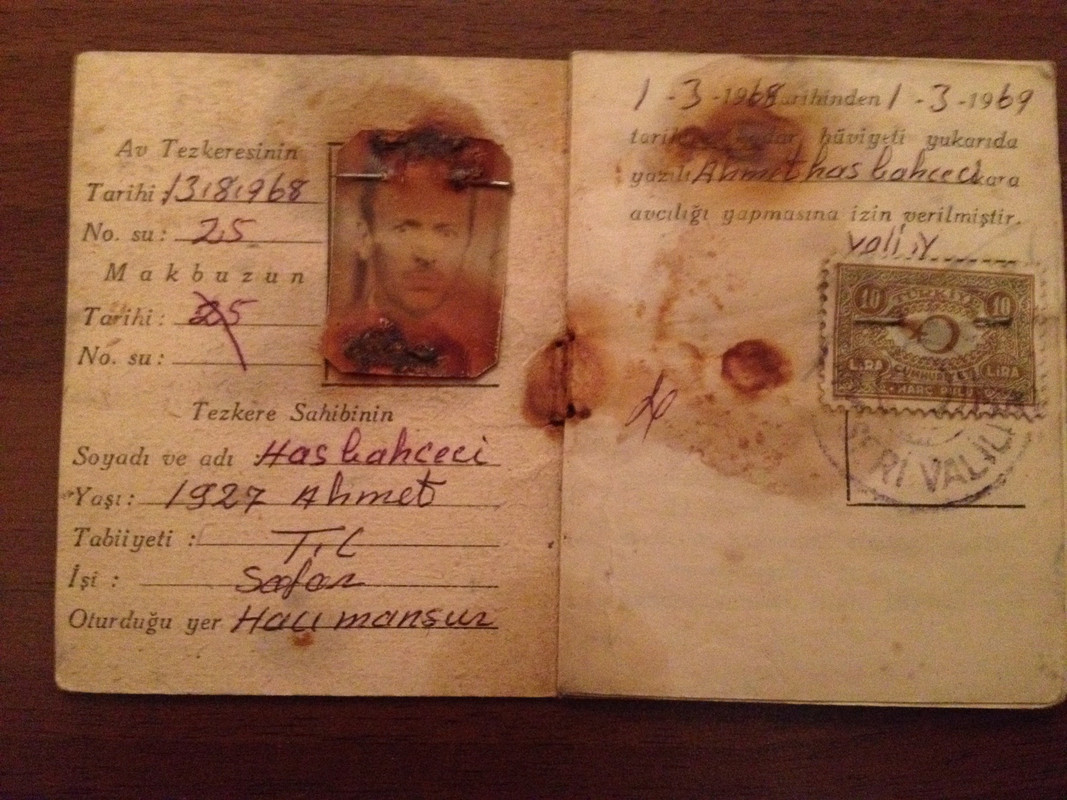 Av Tezkeresinin
Tarihi: 13.8.968
No. su: 25
Makbuzun
Tarihi: 25
No. su:
Tezkere Sahibinin
Soyadı ve adı Hasbahceci
Yaşı: 1927 Ahmet
Tabiiyeti: T.C
İşi: Şoför
Oturduğu yer Hacı mansur
1-3-1968 tarihinden 1-3-1969
hüviyeti yukarıda
yazılı Ahmet hasbahceci kara
avcılığı yapmasına izin verilmiştir.
Vali.Y
10 TÜRKİYE 10
LİRA LİRA
HARÇ PULU
RI VALİLİ